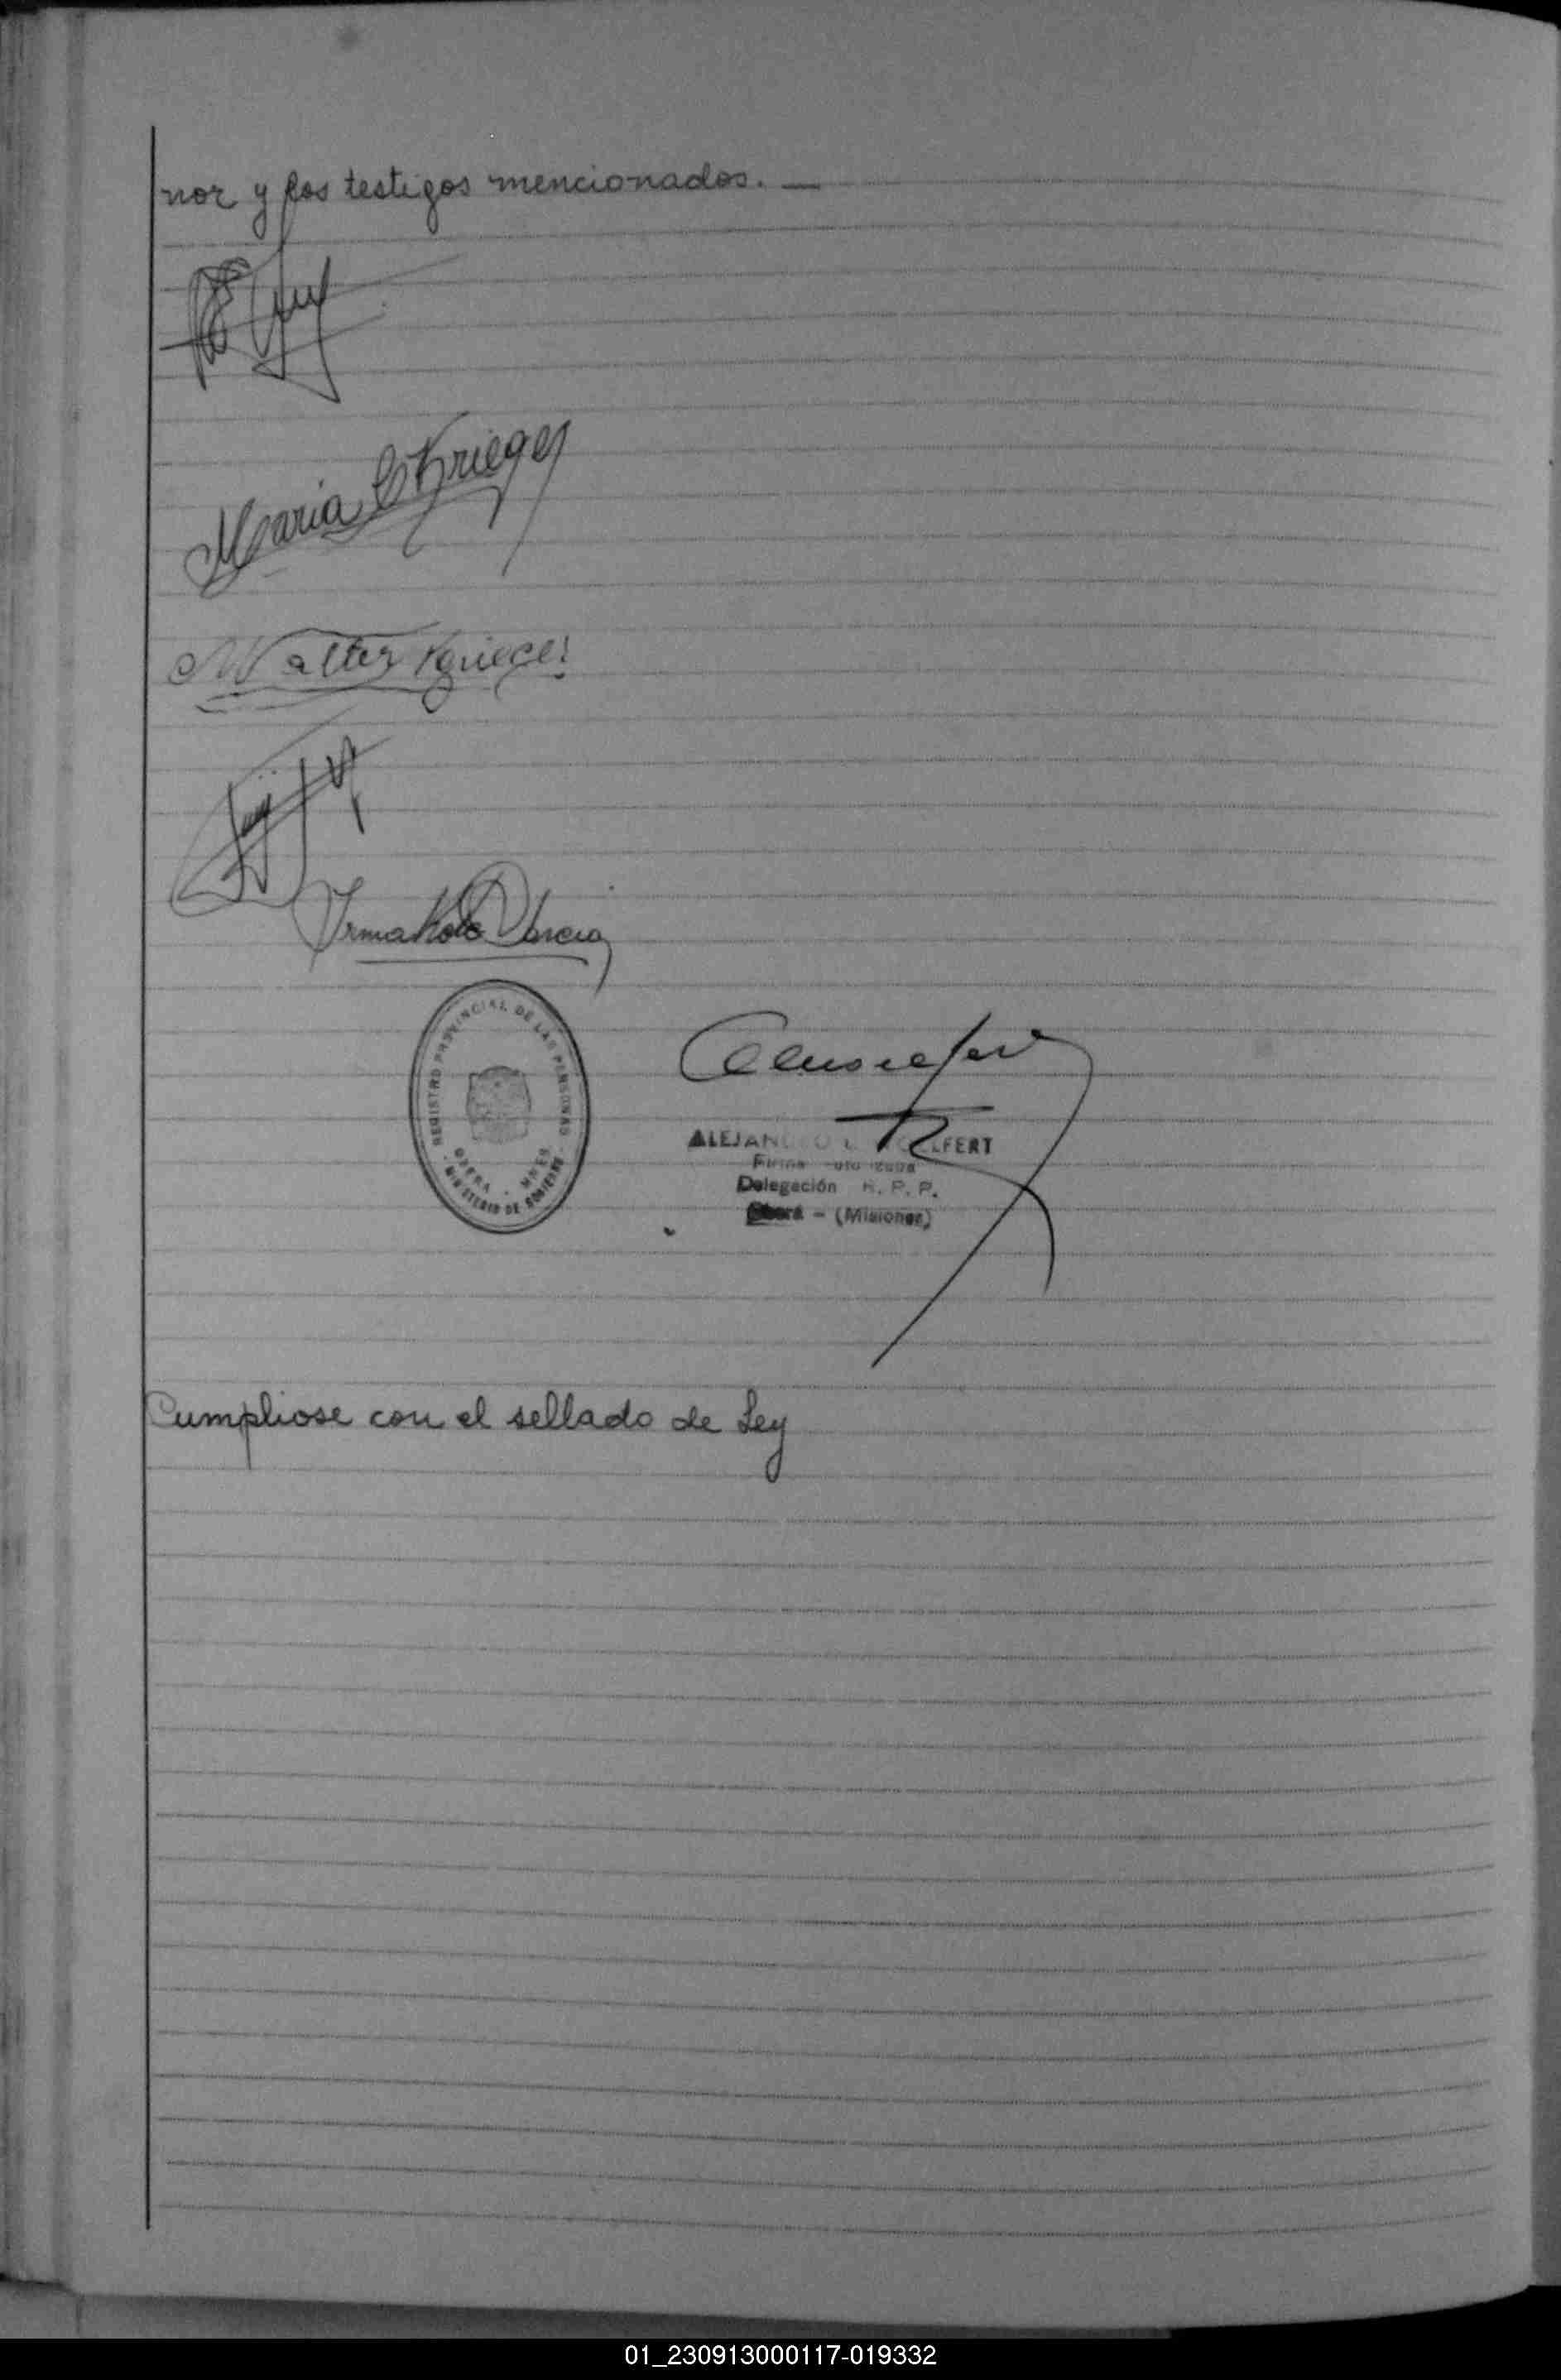 nor y los testigos mencionados. —
Maria C Krieger
Walter Krieger
Irma
REGISTRO PROVINCIAL DE LAS PERSONAS
OBERA - MNES
MINISTERIO DE GOBIERNO
ALEJAN
LFERT
Firma
Delegación R. P. P.
Oberá - (Misiones)
Cumpliose con el sellado de Ley
01_230913000117-019332